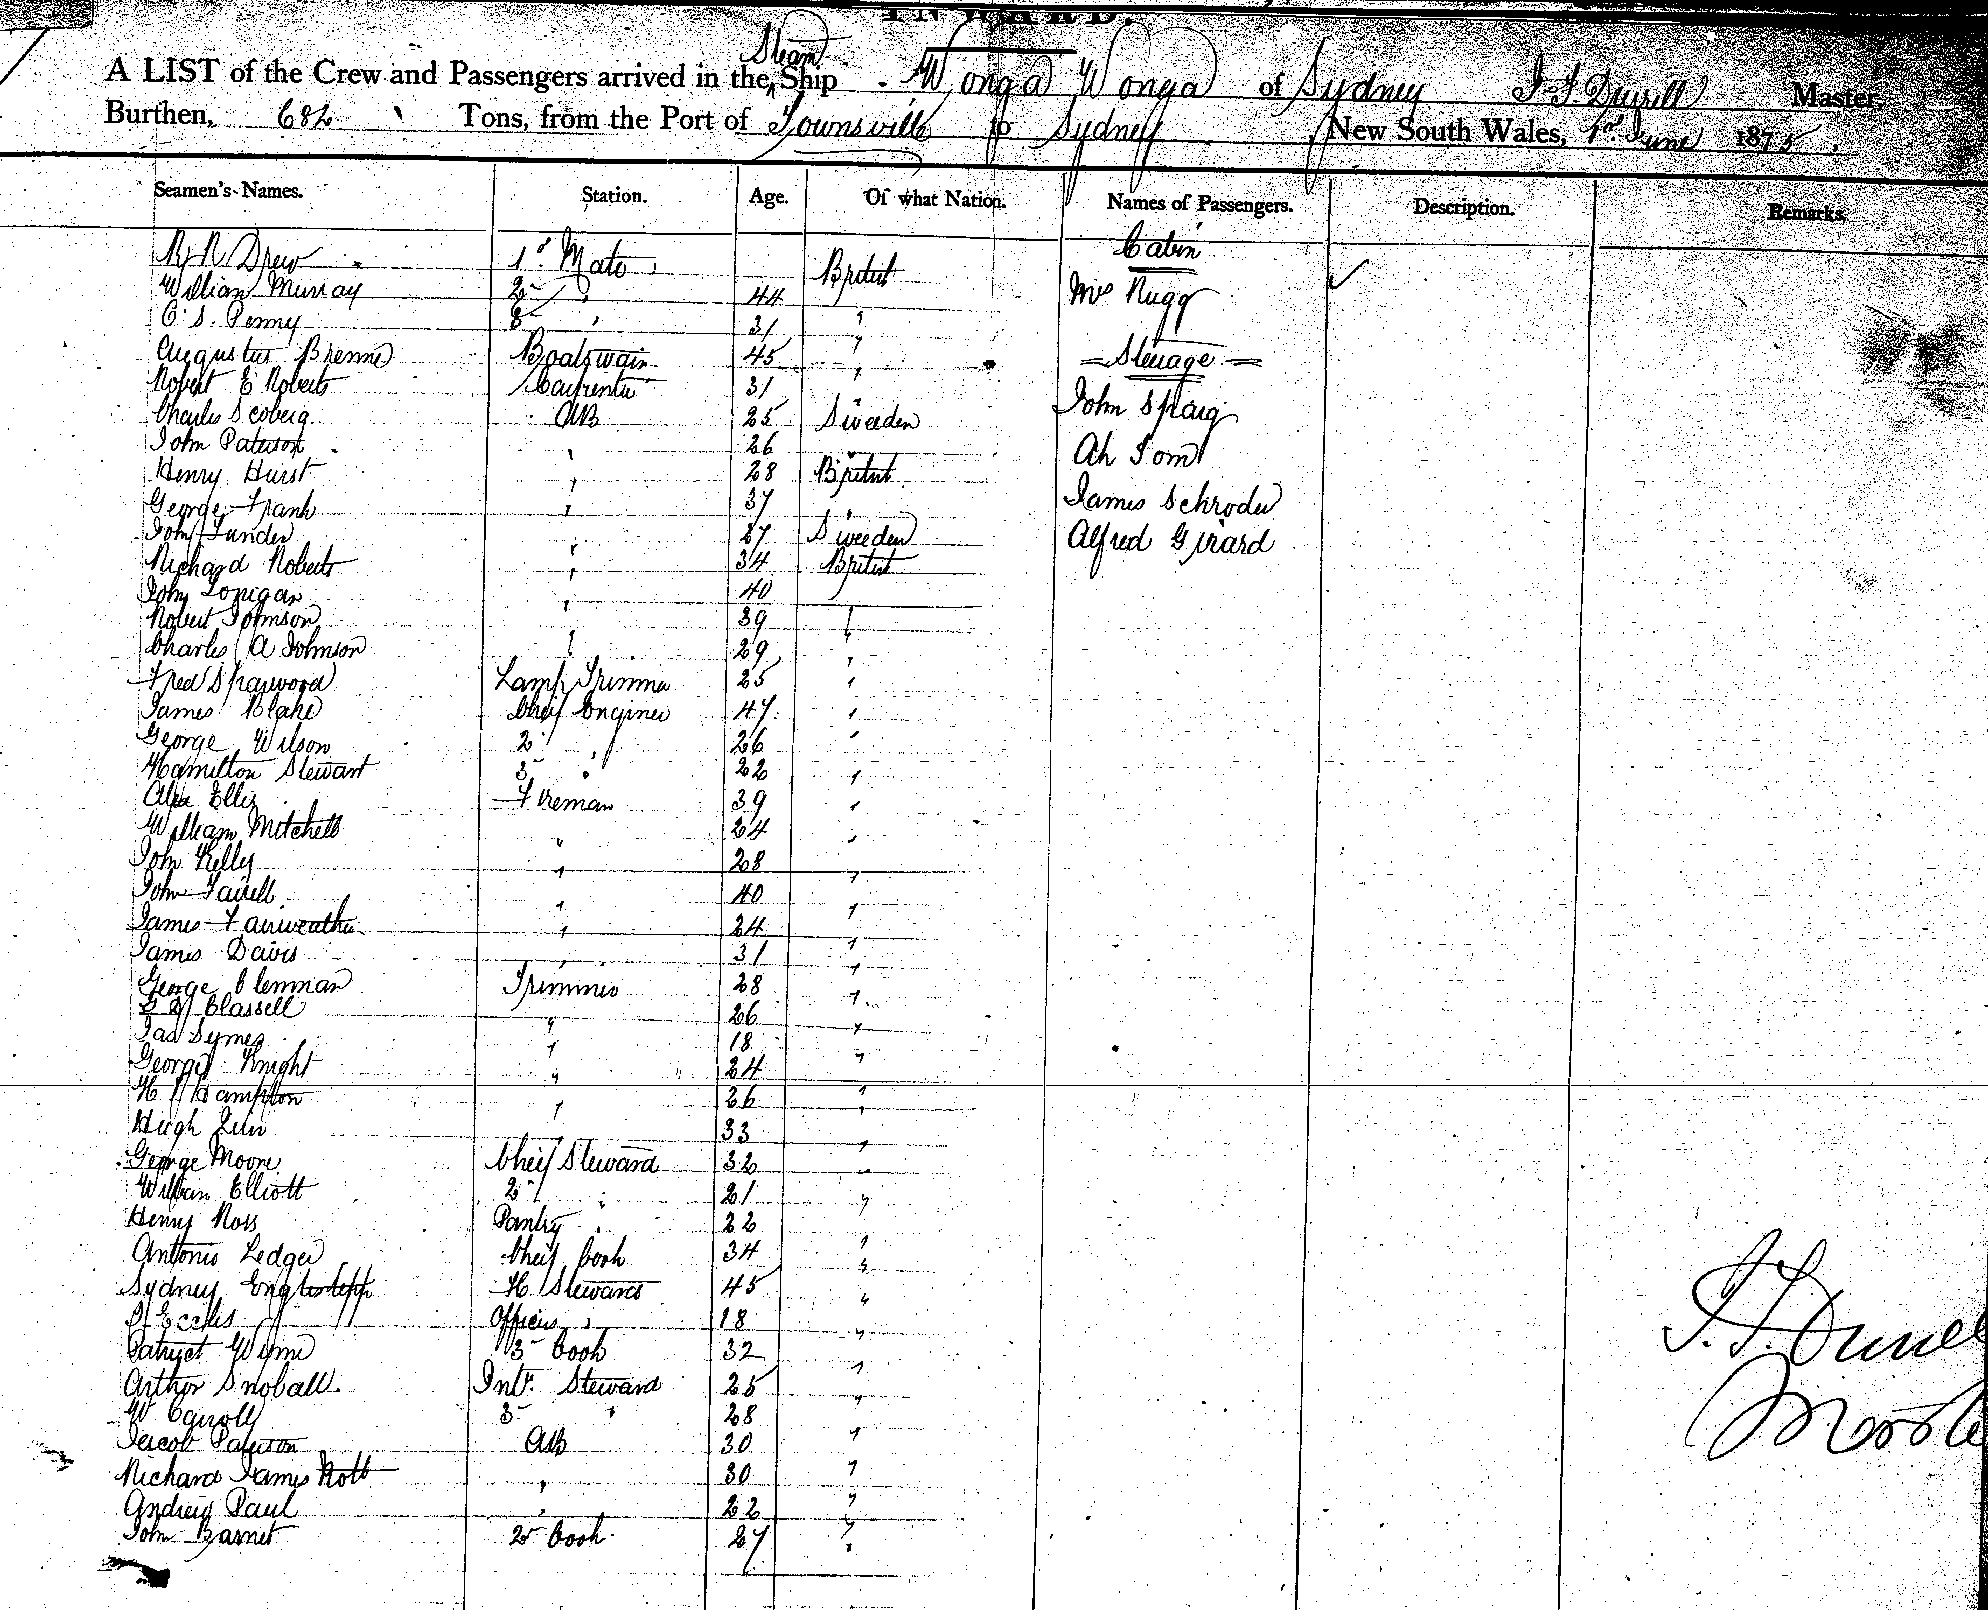 INWARD.
A LIST of the Crew and Passengers arrived in the Steam Ship Wonga Wonga of Sydney Master
Burthen, 682 Tons, from the Port of Townsville to Sydney New South Wales, 1st June 1875
Seamen's Names. Station. Age. Of what Nation. Names of Passengers. Description. Remarks.
R R Drew 1st Mate British Cabin
William Murray 2 " 44 " Mrs Rugg ✓
C. S. Penny 3 " 31 "
Augustus Boatswain 45 " Steerage
Robert E Roberts Carpenter 31 "
Charles Scoberg AB 25 Sweeden John Spraig
John Paterson " 26 " Ah Tom
Henry Hurst " 28 British
George Frank " 37 " James Schroder
John Sunder " 27 Sweeden Alfred Girard
Richard Roberts " 34 British
John Lonigan " 40 "
Robert Johnson " 39 "
Charles A Johnson " 29 "
Fred Sharwood Lamp Trimmer 25 "
James Blake Cheif Enginer 47 "
George Wilson 2 " 26 "
Hamilton Stewart 3 " 22 "
Alex Ellis Fireman 39 "
William Mitchell " 24 "
John Kelly " 28 "
John Farrell " 40 "
James Fairweather " 24 "
James Davis " 31 "
George Clennan Trimmer 28 "
Classell " 26 "
Jas Symes " 18 "
George Knight " 24 "
H Hampton " 26 "
Hugh " 33 "
George Moore Cheif Steward 32 "
William Elliott 2 " 21 "
Henry Ross Pantry " 22 "
Antonio Ledger Cheif Cook 34 "
Sydney H Stewards 45 "
Eccles Officers " 18 "
Patrict Wynne 3 Cook 32 "
Arthur Snoball Intr. Steward 25 "
W Carroll 3 " 28 "
Jacob Paterson AB 30 "
Richard James Robb " 30 "
Andrew Paul " 22 "
John Barnet 2 Cook 27 "